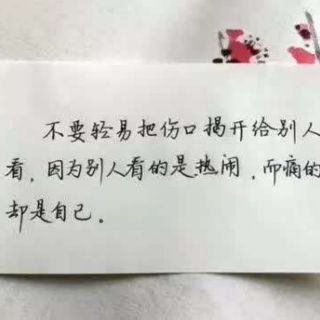 不要轻易把伤口揭开给别人
看，因为别人看的是热闹，而痛的
却是自己。